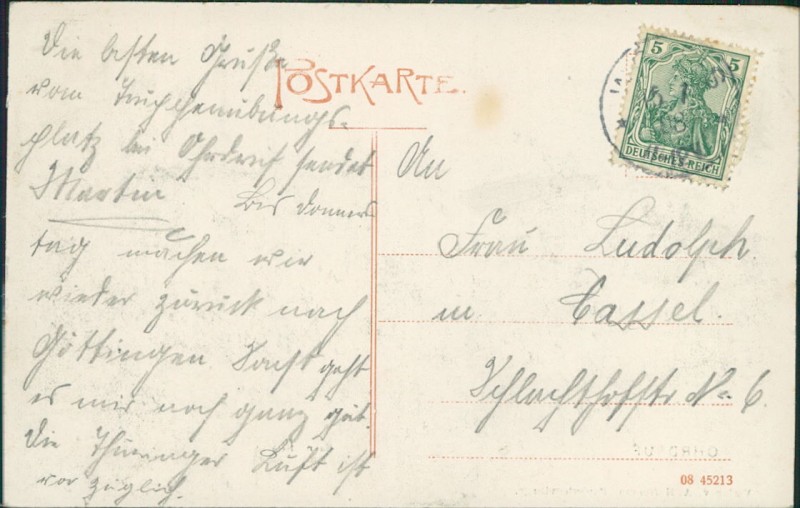 Die besten Grüße
vom Truppenübungs-
platz bei Ohrdruf sendet
Martin Bis Donners
tag machen wir
wieder zurück nach
Göttingen Sonst geht
es mir noch ganz gut.
Die Thüringer Luft ist
vorzüglich.
POSTKARTE.
5 5
DEUTSCHES REICH
An
Frau Ludolph.
in Cassel.
Schlachthofstr No 6.
08 45213